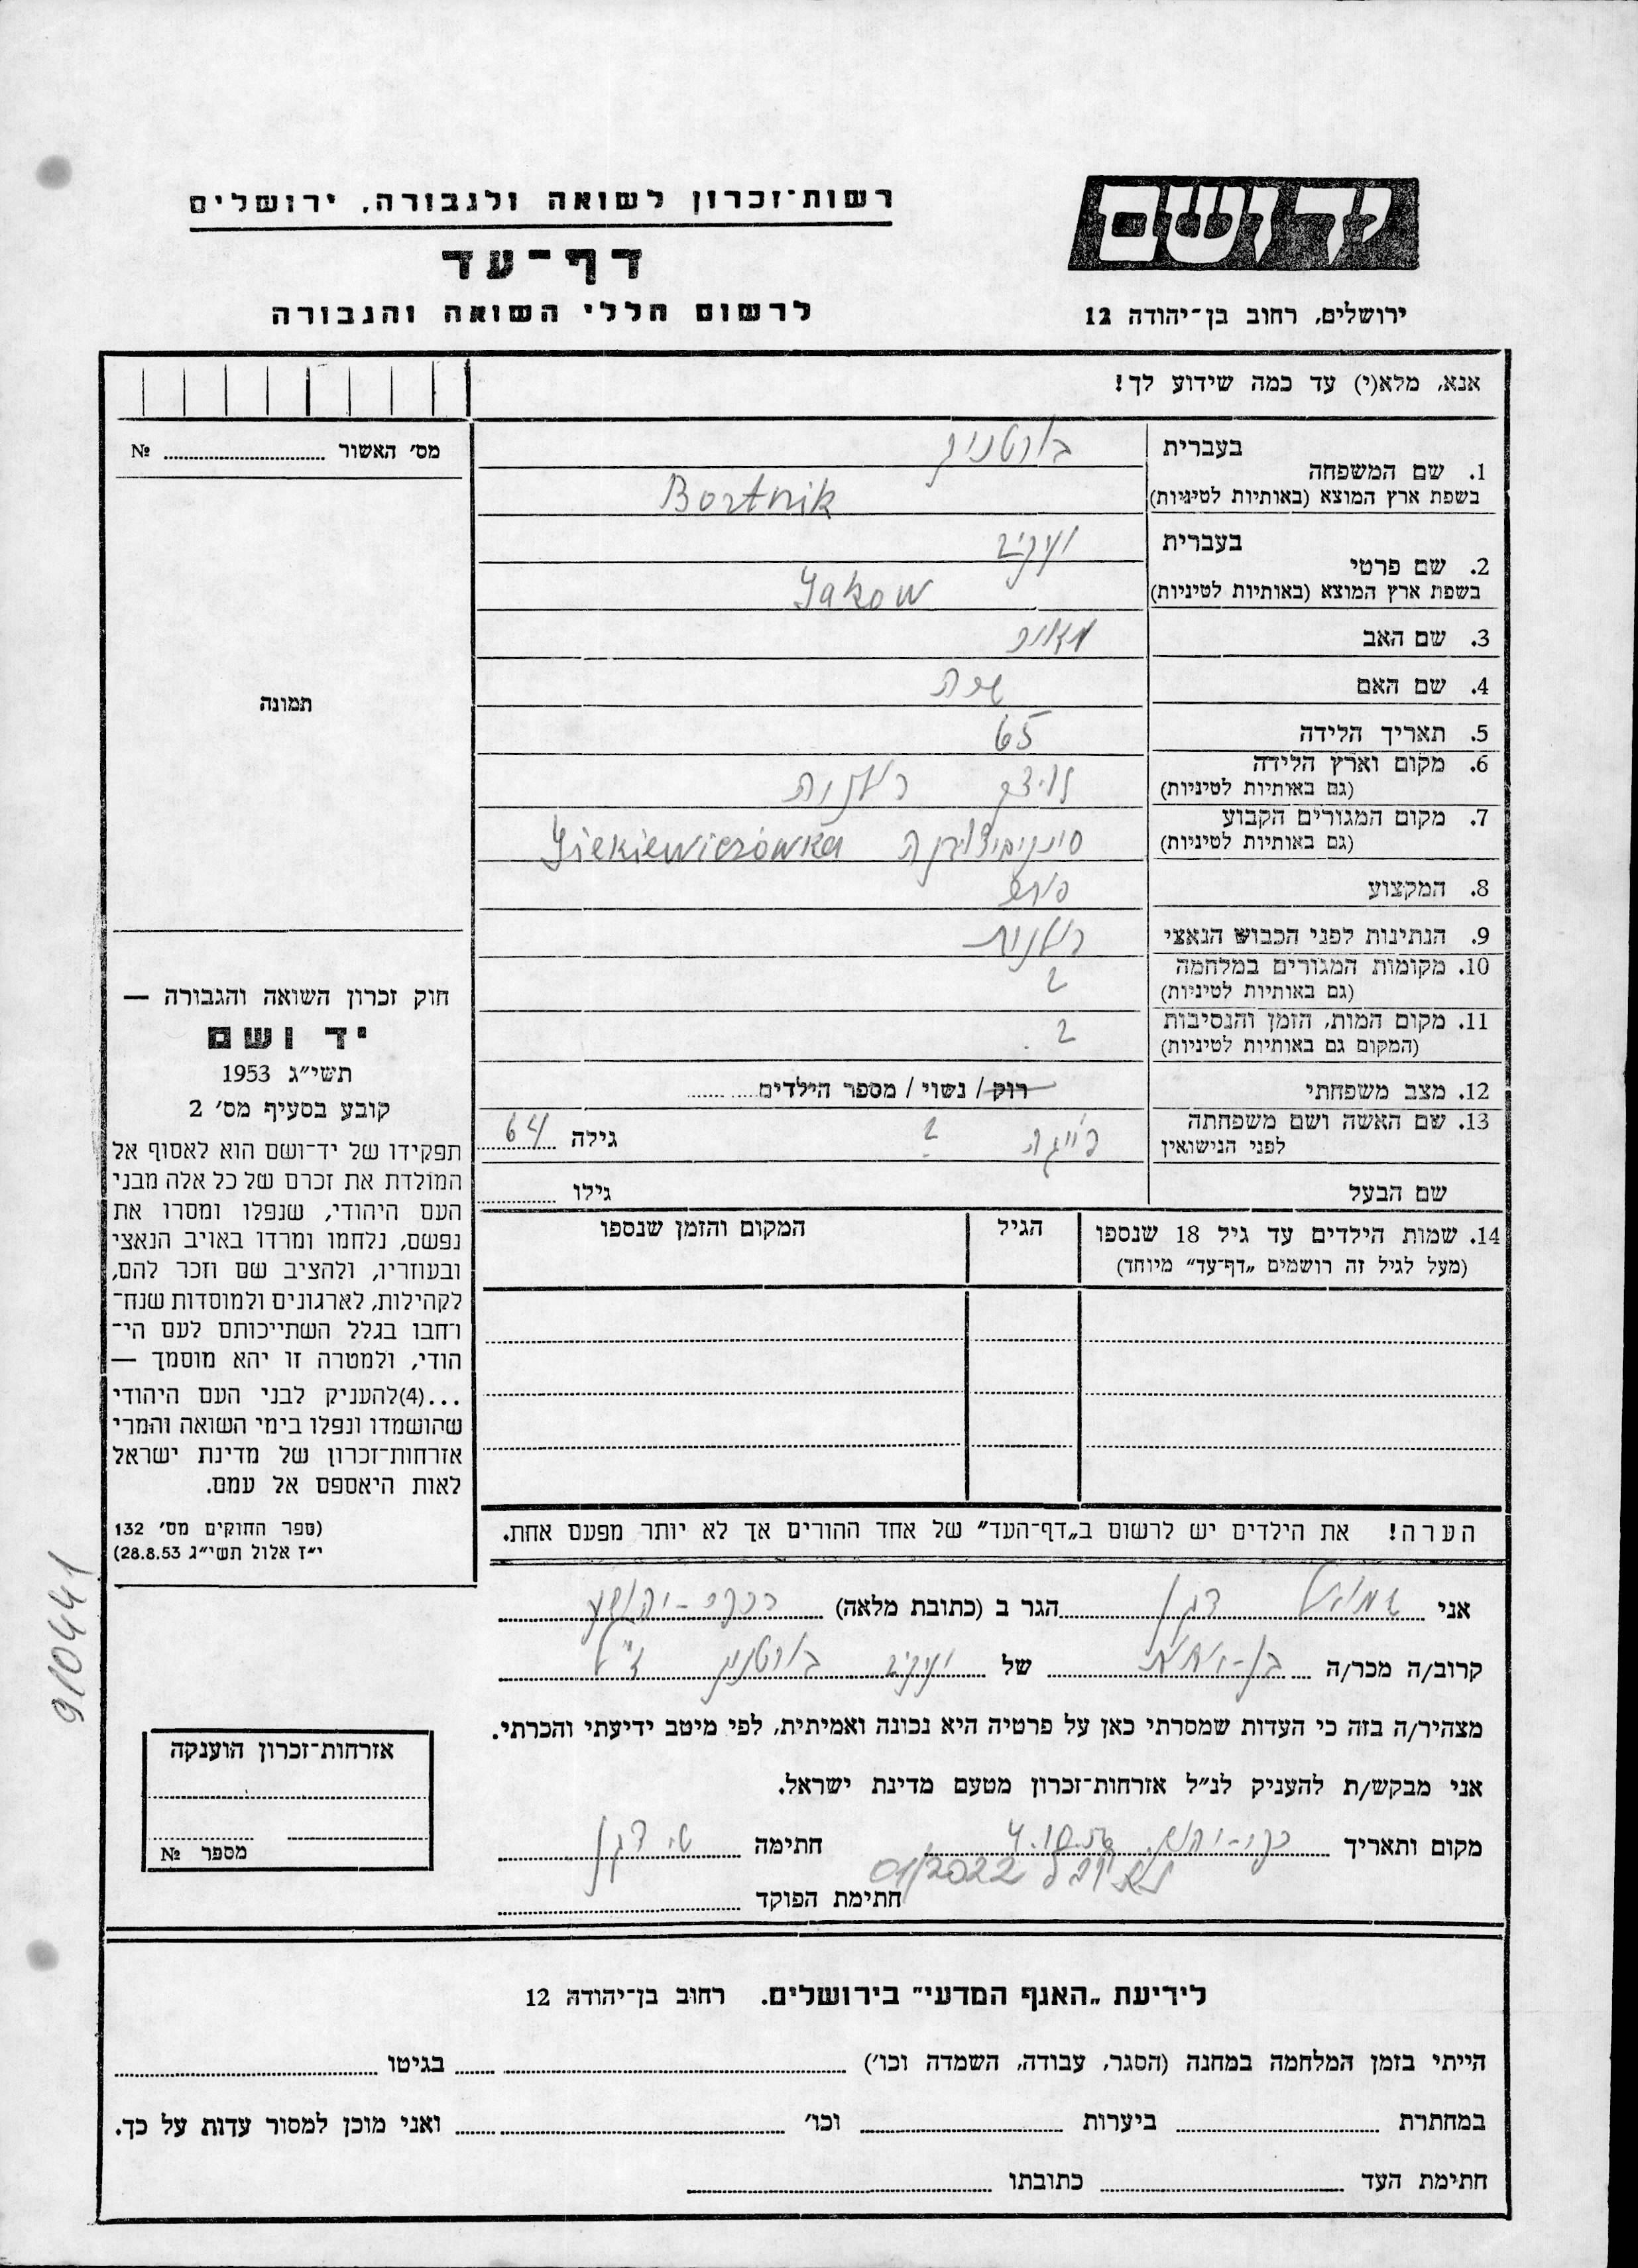 רשות־זכרון לשואה ולגבורה, ירושלים
דף־עד
לרשום חללי השואה והגבורה
יד ושם
ירושלים, רחוב בן־יהודה 12
אנא, מלא(י) עד כמה שידוע לך!
מס׳ האשור ............ №
תמונה
חוק זכרון השואה והגבורה —
יד ושם
תשי״ג 1953
קובע בסעיף מס׳ 2
תפקידו של יד-ושם הוא לאסוף אל
המולדת את זכרם של כל אלה מבני
העם היהודי, שנפלו ומסרו את
נפשם, נלחמו ומרדו באויב הנאצי
ובעוזריו, ולהציב שם וזכר להם,
לקהילות, לארגונים ולמוסדות שנח־
רחבו בגלל השתייכותם לעם הי־
הודי, ולמטרה זו יהא מוסמך —
...(4)להעניק לבני העם היהודי
שהושמדו ונפלו בימי השואה והמרי
אזרחות־זכרון של מדינת ישראל
לאות היאספם אל עמם.
(ספר החוקים מס׳ 132
י״ז אלול תשי״ג 28.8.53)
בעברית בורטניק
1. שם המשפחה
בשפת ארץ המוצא (באותיות לטיניות) Bortnik
בעברית יעקב
2. שם פרטי
בשפת ארץ המוצא (באותיות לטיניות) Yakow
3. שם האב
4. שם האם
5. תאריך הלידה 65
6. מקום וארץ הלידה
(גם באותיות לטיניות)
7. מקום המגורים הקבוע
(גם באותיות לטיניות)
8. המקצוע
9. הנתינות לפני הכבוש הנאצי
10. מקומות המגורים במלחמה ?
(גם באותיות לטיניות)
11. מקום המות, הזמן והנסיבות ?
(המקום גם באותיות לטיניות)
12. מצב משפחתי רוק / נשוי / מספר הילדים
13. שם האשה ושם משפחתה פייגה ? גילה 64
לפני הנישואין
שם הבעל גילו
14. שמות הילדים עד גיל 18 שנספו הגיל המקום והזמן שנספו
(מעל לגיל זה רושמים „דף־עד״ מיוחד)
הערה! את הילדים יש לרשום ב„דף־העד״ של אחד ההורים אך לא יותר מפעם אחת.
אני שמואל דגן הגר ב (כתובת מלאה)
קרוב/ה מכר/ה של יעקב בורטניק ז״ל
מצהיר/ה בזה כי העדות שמסרתי כאן על פרטיה היא נכונה ואמיתית, לפי מיטב ידיעתי והכרתי.
אני מבקש/ת להעניק לנ״ל אזרחות־זכרון מטעם מדינת ישראל.
מקום ותאריך 4.10.56 חתימה ש. דגן
01/2022
חתימת הפוקד
אזרחות־זכרון הוענקה
מספר №
910441
לידיעת „האגף המדעי״ בירושלים. רחוב בן־יהודה 12
הייתי בזמן המלחמה במחנה (הסגר, עבודה, השמדה וכו׳) בגיטו
במחתרת ביערות וכו׳ ואני מוכן למסור עדות על כך.
חתימת העד כתובתו